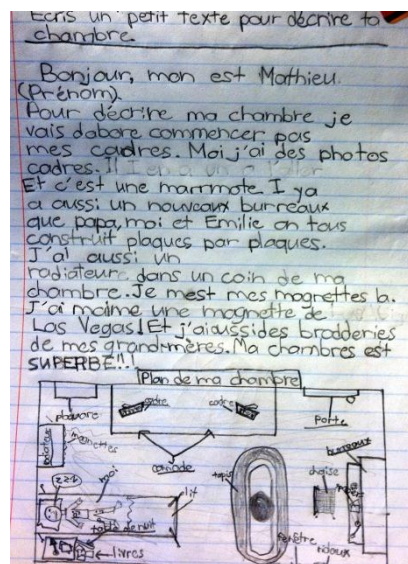 Ecris un petit texte pour décrire ta
chambre.
Bonjour, mon est Mathieu.
(Prénom)
Pour décrire ma chambre je
vais dabore commencer pas
mes cadres. Moi j'ai des photos
cadres. Il
Et c'est une marmote. I ya
a aussi un nouveaux burreaux
que papa, moi et Emilie on tous
construit plaques par plaques.
J'ai aussi un
radiateur dans un coin de ma
chambre. Je mest mes magnettes la.
J'ai maime une magnette de
Las Vegas! Et j'ai aussi des brodderies
de mes grand-mères. Ma chambres est
SUPERBE!!!
Plan de ma chambre
cadre
cadre
plaquare
porte
radiateur
magnettes
comode
burreaux
zzz
moi
lit
tapis
chaise
table de nuit
livres
fenêtre
ridaux